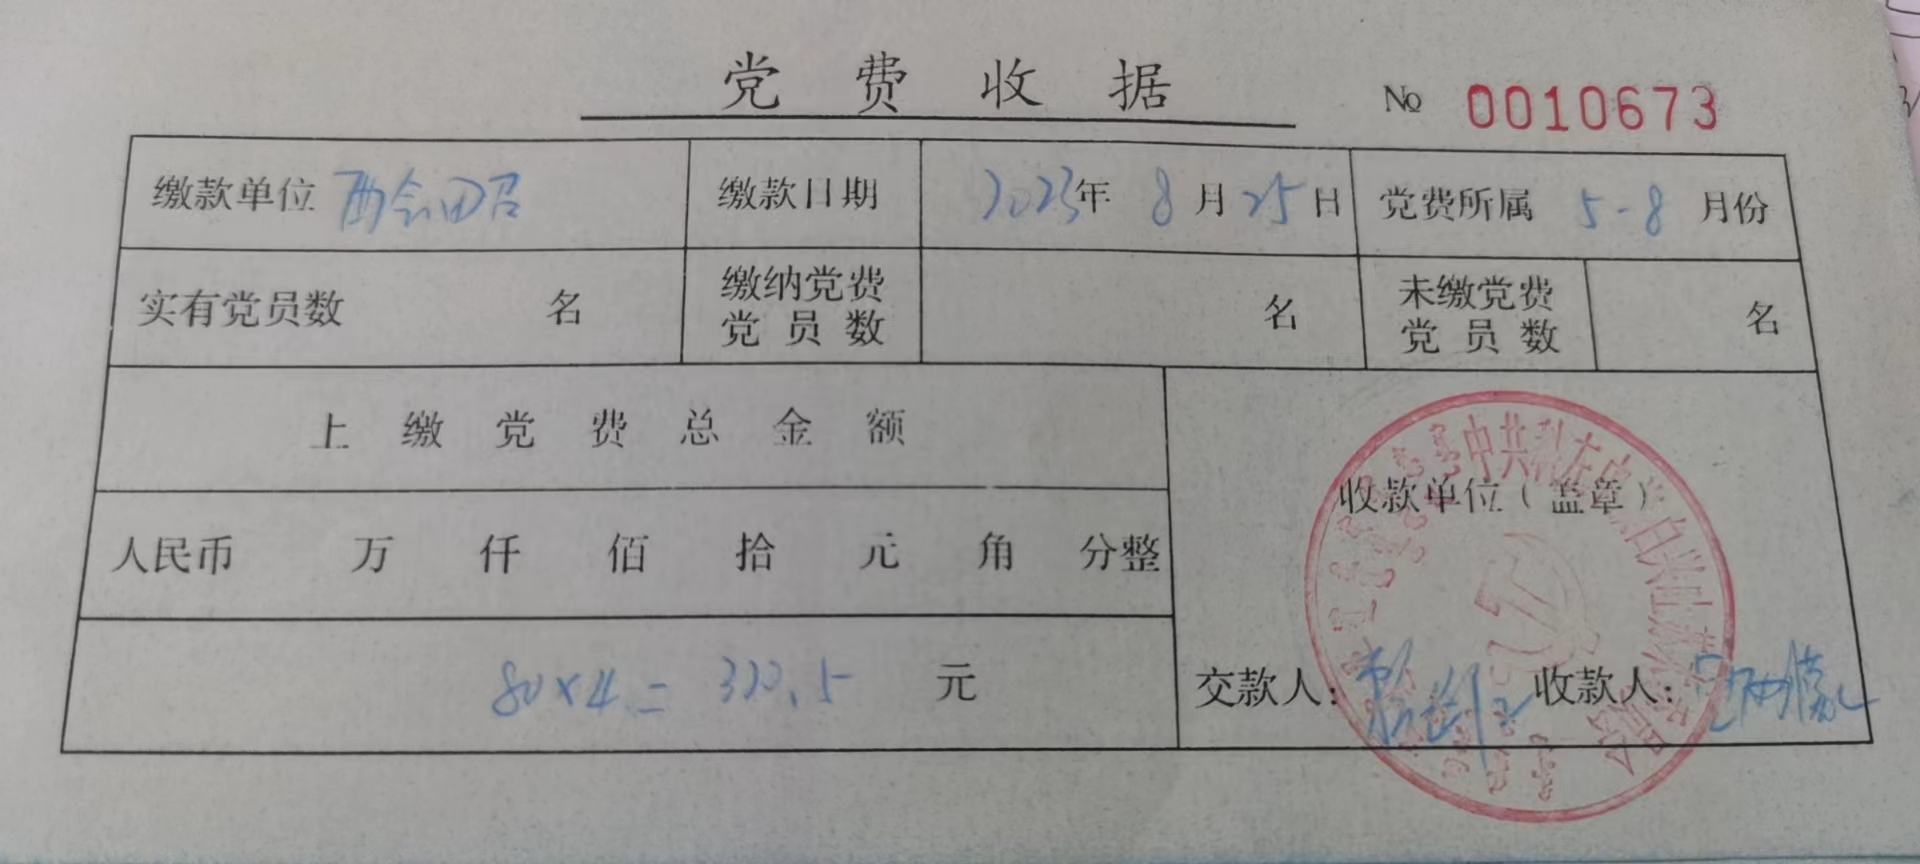 党费收据
№ 0010673
缴款单位 缴款日期 2023年 8月25日 党费所属 5-8 月份
实有党员数 名 缴纳党费党员数 名 未缴党费党员数 名
上缴党费总金额
收款单位（盖章）
人民币 万 仟 佰 拾 元 角 分整
80×4= 320.5 元
交款人： 收款人：